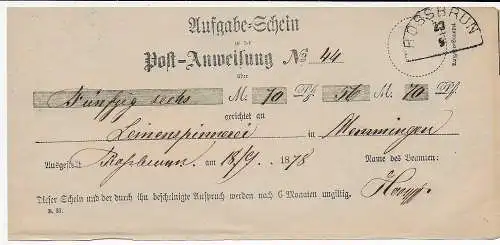 Aufgabe-Schein
ROSSBRUN
zu der
Post-Anweisung No 44
über
Fünfzig sechs M. 70 Pf. 56 M. 70 Pf.
gerichtet an
Leinenspinnerei in Memmingen
Ausgestellt Roßbrunn, am 18/9. 1878 Name des Beamten:
Dieser Schein und der durch ihn bescheinigte Anspruch werden nach 6 Monaten ungiltig.